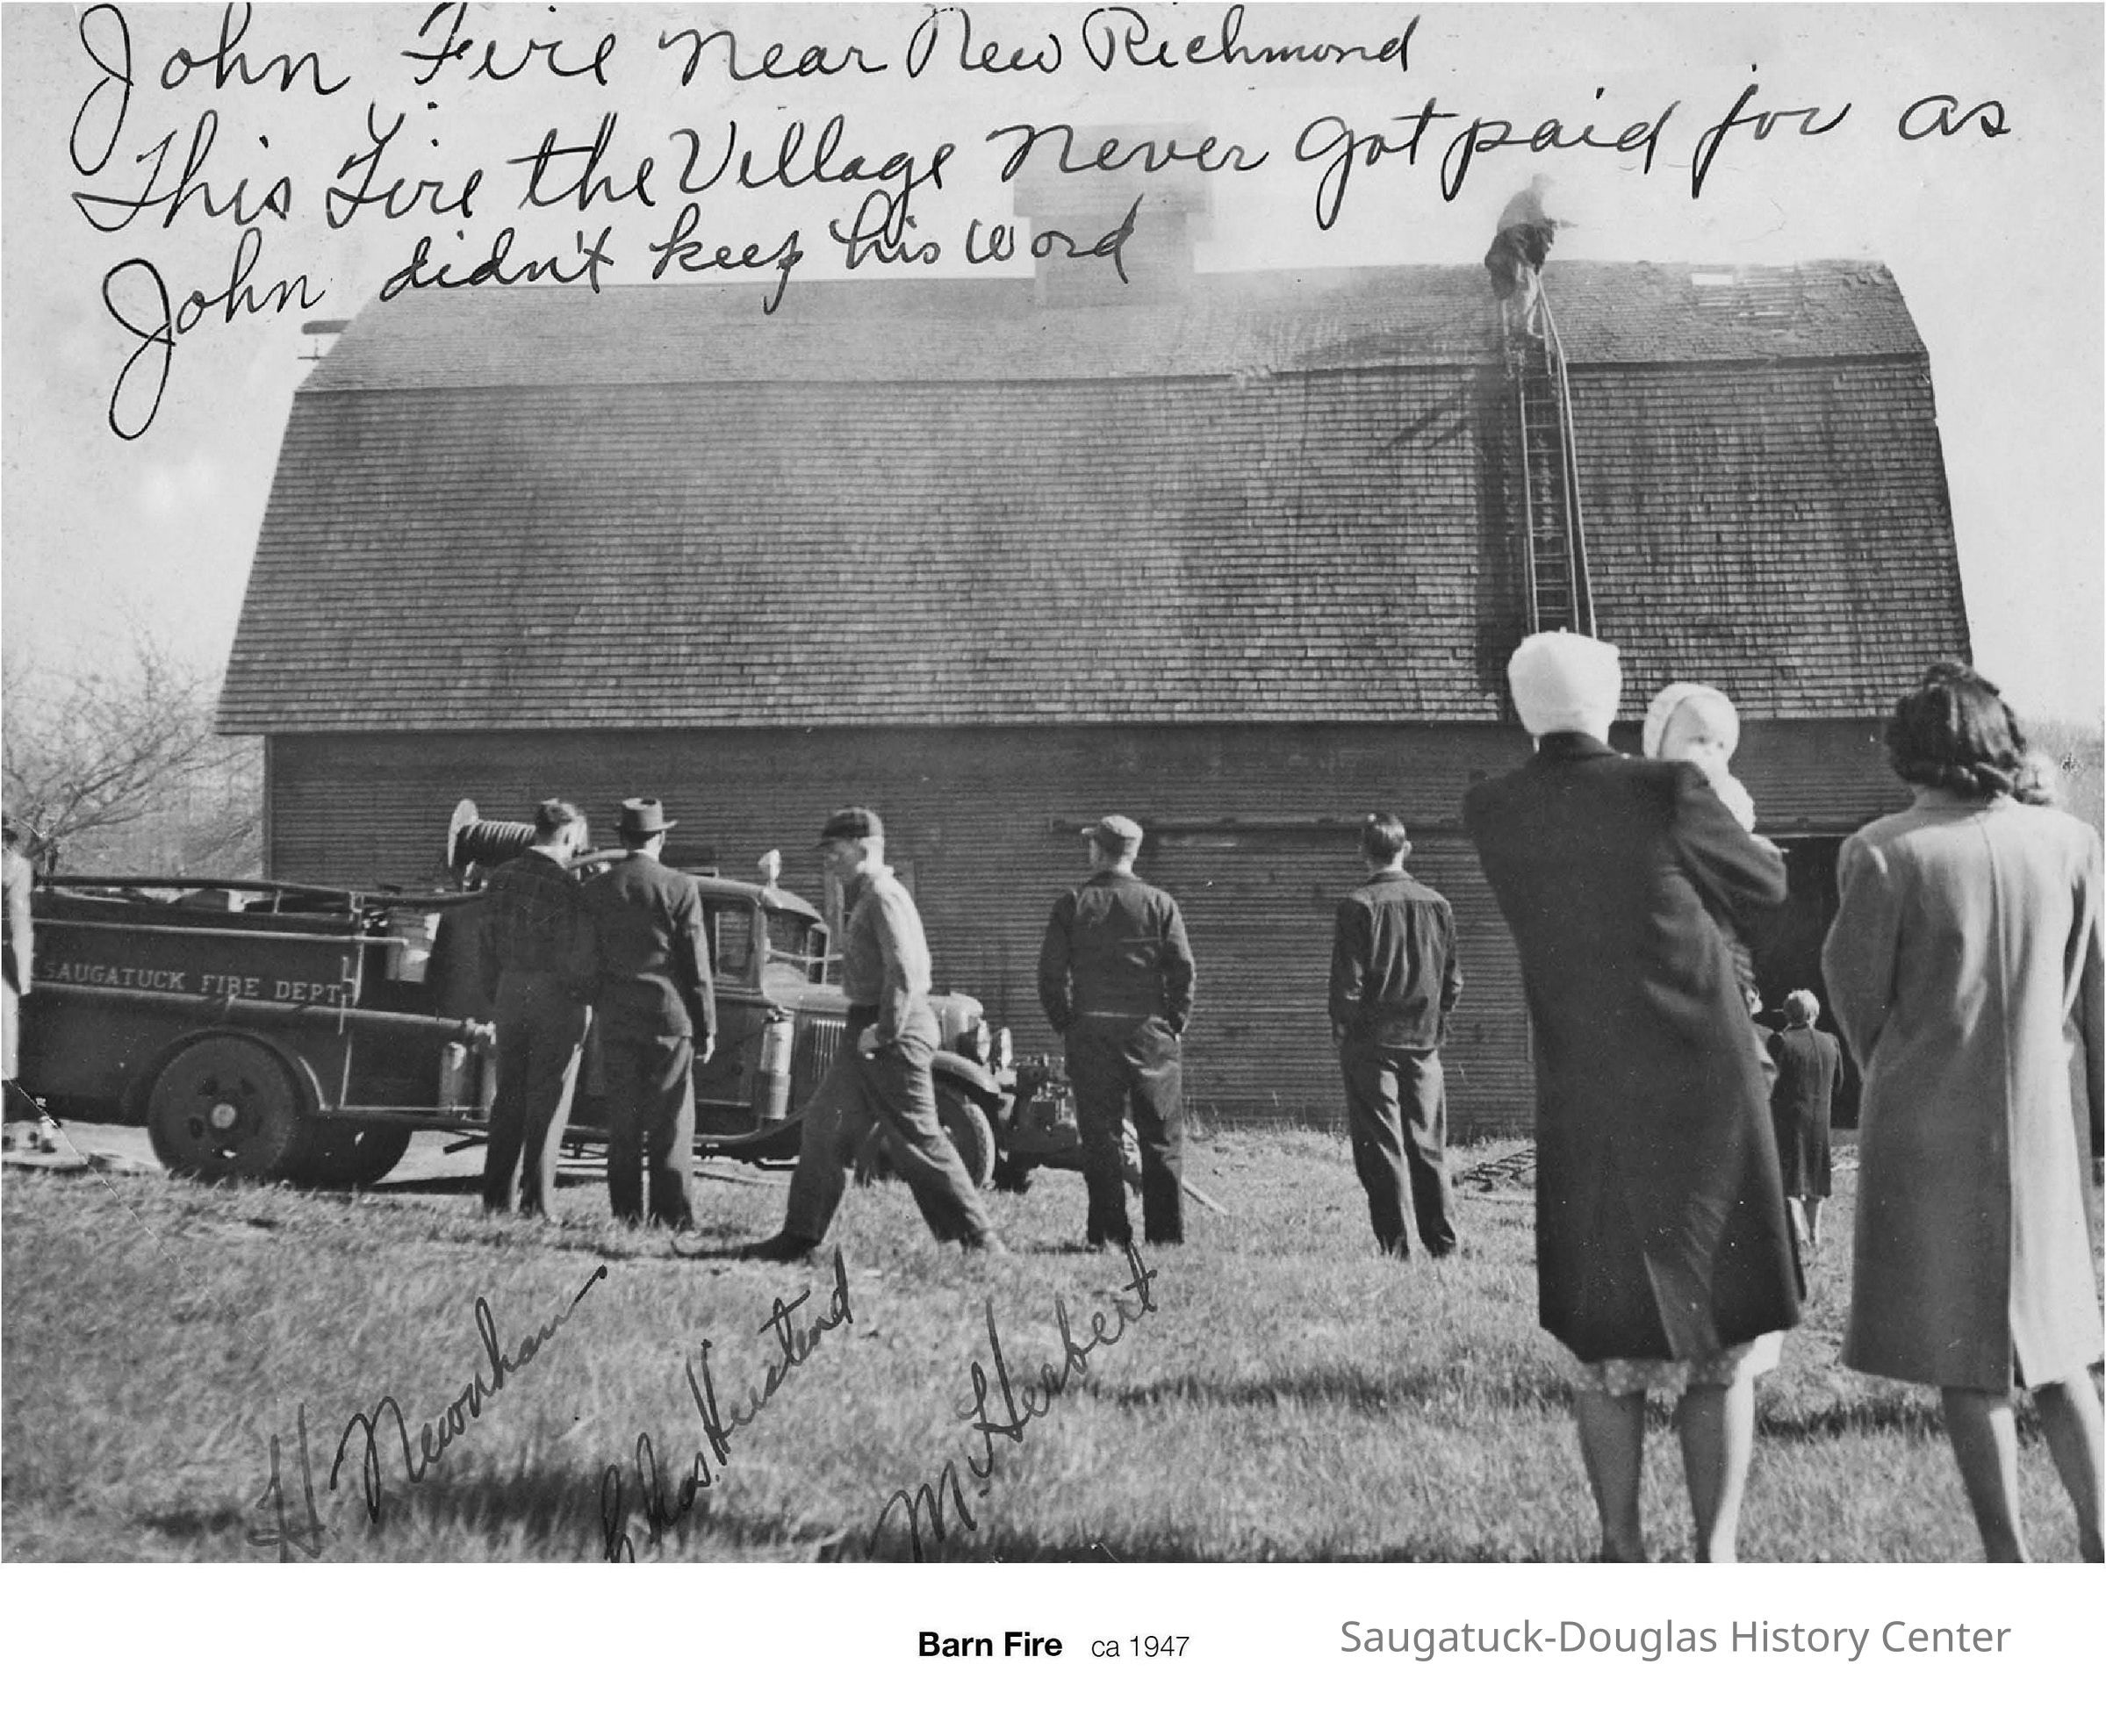 John Fire Near New Richmond
This Fire the Village Never Got paid for as
John didn't keep his word
SAUGATUCK FIRE DEPT.
H Newnham
Chas. Hustend
M. Herbert
Barn Fire ca 1947
Saugatuck-Douglas History Center